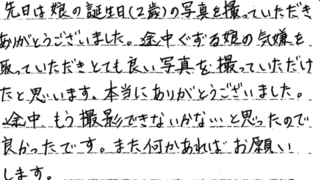 先日は娘の誕生日(2歳)の写真を撮っていただき
ありがとうございました。途中ぐずる娘の気嫌を
取っていただきとても良い写真を撮っていただけ
たと思います。本当にありがとうございました。
途中 もう撮影できないかな〜と思ったので
良かったです。また何かあれば お願い
します。